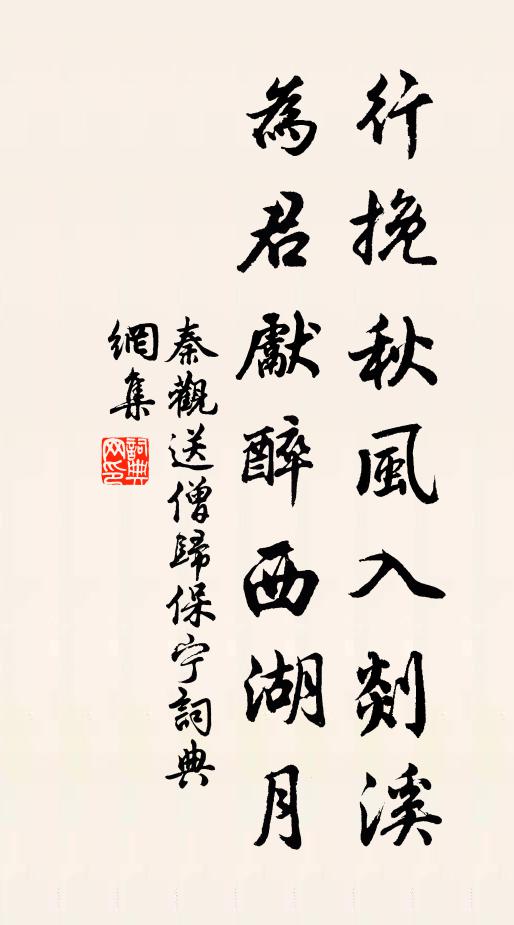 行挽秋風入剡溪
為君獻醉西湖月
秦觀送僧歸保宁詞典
網集
詞典
网印